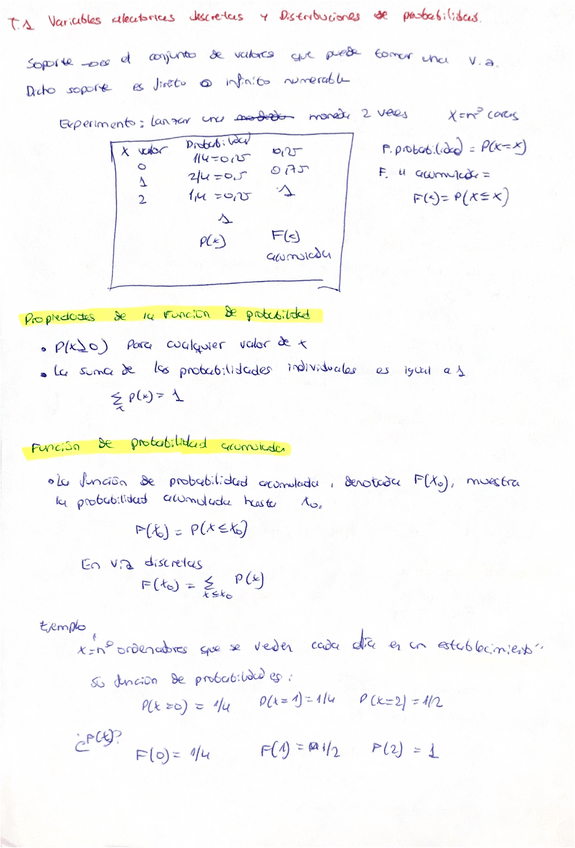 T.1 Variables aleatorias discretas y Distribuciones de probabilidad.
Soporte → es el conjunto de valores que puede tomar una v.a.
Dicho soporte es finito o infinito numerable
Experimento: Lanzar una moneda 2 veces X=nº caras
X valor Probabilidad
0 1/4=0,25 0,25
1 2/4=0,5 0,75
2 1/4=0,25 1
1
P(x) F(x)
acumulada
F. probabilidad = P(X=x)
F. " acumulada =
F(x)=P(X≤x)
Propiedades de la función de probabilidad
• P(x≥0) Para cualquier valor de x
• La suma de las probabilidades individuales es igual a 1
∑x P(x)=1
Función de probabilidad acumulada
• La función de probabilidad acumulada, denotada F(x₀), muestra
la probabilidad acumulada hasta x₀,
F(x₀) = P(X≤x₀)
En v.a discretas
F(x₀) = ∑x≤x₀ P(x)
Ejemplo
"X=nº ordenadores que se veden cada día en un establecimiento"
Su función de probabilidad es:
P(x=0) = 1/4 P(x=1)=1/4 P(x=2)=1/2
¿F(x)?
F(0)= 1/4 F(1)= 1/2 F(2) = 1